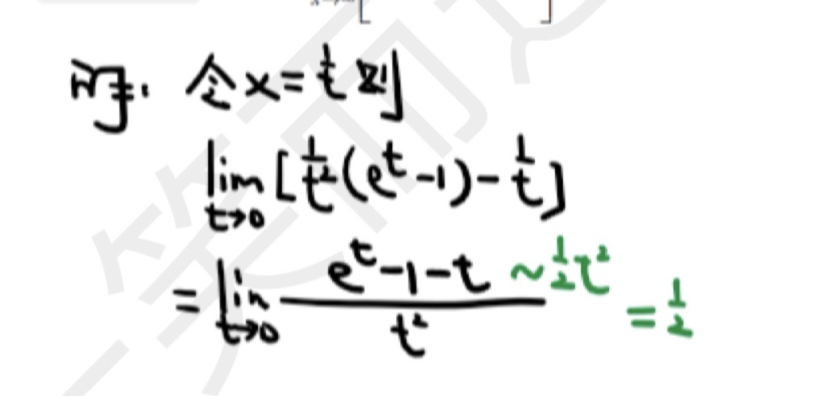 解: 令x=1/t 则
lim t→0 [1/t²(e^t-1)-1/t]
=lim t→0 (e^t-1-t)/t² ~1/2t² =1/2